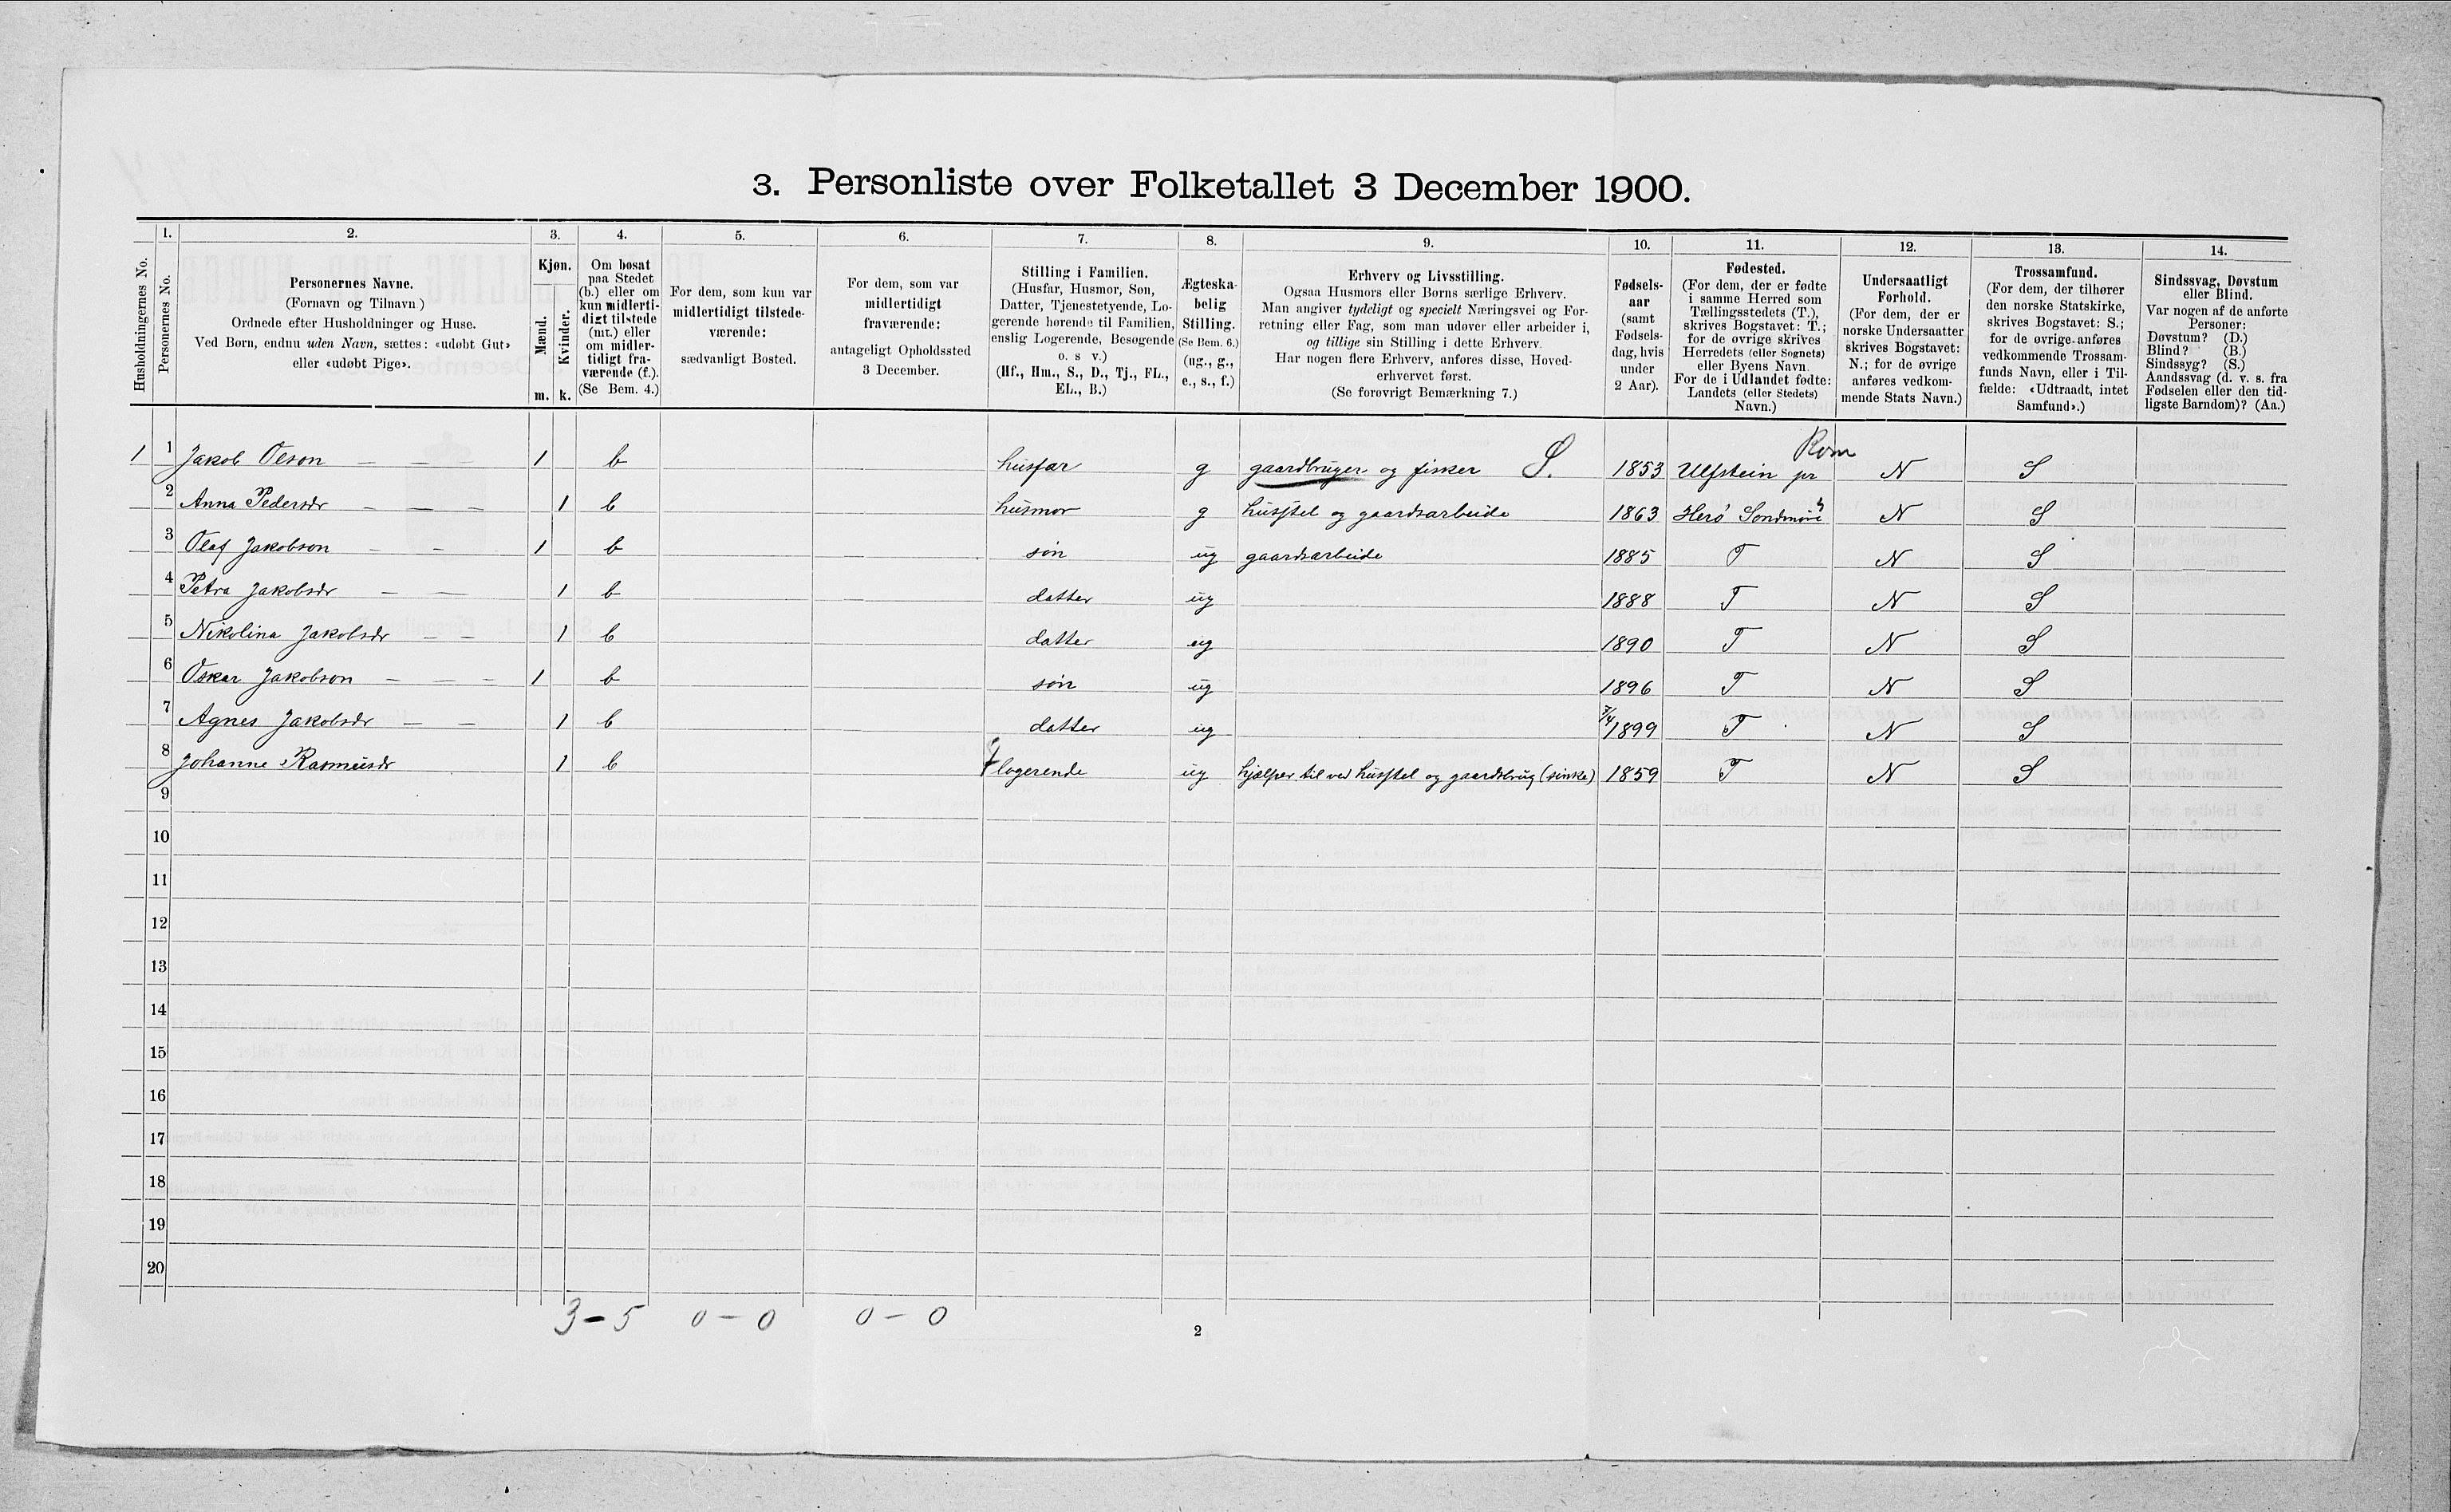 3. Personliste over Folketallet 3 December 1900.
1. 2. 3. 4. 5. 6. 7. 8. 9. 10. 11. 12. 13. 14.
Husholdningernes No.
Personernes No.
Personernes Navne.
(Fornavn og Tilnavn)
Ordnede efter Husholdninger og Huse.
Ved Børn, endnu uden Navn, sættes: «udøbt Gut»
eller «udøbt Pige».
Kjøn.
Mænd.
Kvinder.
m. k.
Om bosat
paa Stedet
(b.) eller om
kun midlerti-
digt tilstede
(mt.) eller
om midler-
tidigt fra-
værende (f.).
(Se Bem. 4.)
For dem, som kun var
midlertidigt tilstede-
værende:
sædvanligt Bosted.
For dem, som var
midlertidigt
fraværende:
antageligt Opholdssted
3 December.
Stilling i Familien.
(Husfar, Husmor, Søn,
Datter, Tjenestetyende, Lo-
gerende hørende til Familien,
enslig Logerende, Besøgende
o. s v.)
(Hf., Hm., S., D., Tj., FL.,
EL., B.)
Ægteska-
belig
Stilling.
(Se Bem. 6.)
(ug., g.,
e., s., f.)
Erhverv og Livsstilling.
Ogsaa Husmors eller Børns særlige Erhverv.
Man angiver tydeligt og specielt Næringsvei og For-
retning eller Fag, som man udøver eller arbeider i,
og tillige sin Stilling i dette Erhverv.
Har nogen flere Erhverv, anføres disse, Hoved-
erhvervet først.
(Se forøvrigt Bemærkning 7.)
Fødsels-
aar
(samt
Fødsels-
dag, hvis
under
2 Aar).
Fødested.
(For dem, der er fødte
i samme Herred som
Tællingsstedets (T.),
skrives Bogstavet: T.;
for de øvrige skrives
Herredets (eller Sognets)
eller Byens Navn.
For de i Udlandet fødte:
Landets (eller Stedets)
Navn.)
Undersaatligt
Forhold.
(For dem, der er
norske Undersaatter
skrives Bogstavet:
N.; for de øvrige
anføres vedkom-
mende Stats Navn.)
Trossamfund.
(For dem, der tilhører
den norske Statskirke,
skrives Bogstavet: S.;
for de øvrige anføres
vedkommende Trossam-
funds Navn, eller i Til-
fælde: «Udtraadt, intet
Samfund».)
Sindssvag, Døvstum
eller Blind.
Var nogen af de anførte
Personer:
Døvstum? (D.)
Blind? (B.)
Sindssyg? (S.)
Aandssvag (d. v. s. fra
Fødselen eller den tid-
ligste Barndom)? (Aa.)
1 1 Jakob Olson — — — 1 b husfar g gaardbruger og fisker S. 1853 Ulfstein pr Rom N S
2 Anna Pedersdr — — — 1 b husmor g husstel og gaardsarbeide 1863 Herø Sondmøre N S
3 Olaf Jakobson — — 1 b søn ug gaardsarbeide 1885 T N S
4 Petra Jakobsdr — — 1 b datter ug 1888 T N S
5 Nikolina Jakobsdr — — 1 b datter ug 1890 T N S
6 Oskar Jakobson — — — 1 b søn ug 1896 T N S
7 Agnes Jakobsdr — — 1 b datter ug 7/4 1899 T N S
8 Johanne Rasmusdr 1 b logerende ug hjælper til ved husstel og gaardsbrug (sinke) 1859 T N S
9
10
11
12
13
14
15
16
17
18
19
20
3 – 5 0 – 0 0 – 0
2